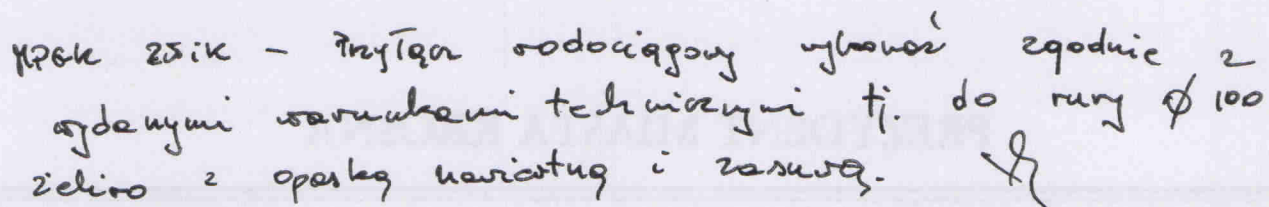 MPGK ZWiK – Przyłącz wodociągowy wykonać zgodnie z
wydanymi warunkami technicznymi tj do rury ø 100
żeliwo z opaską nawiertną i zasuwą.